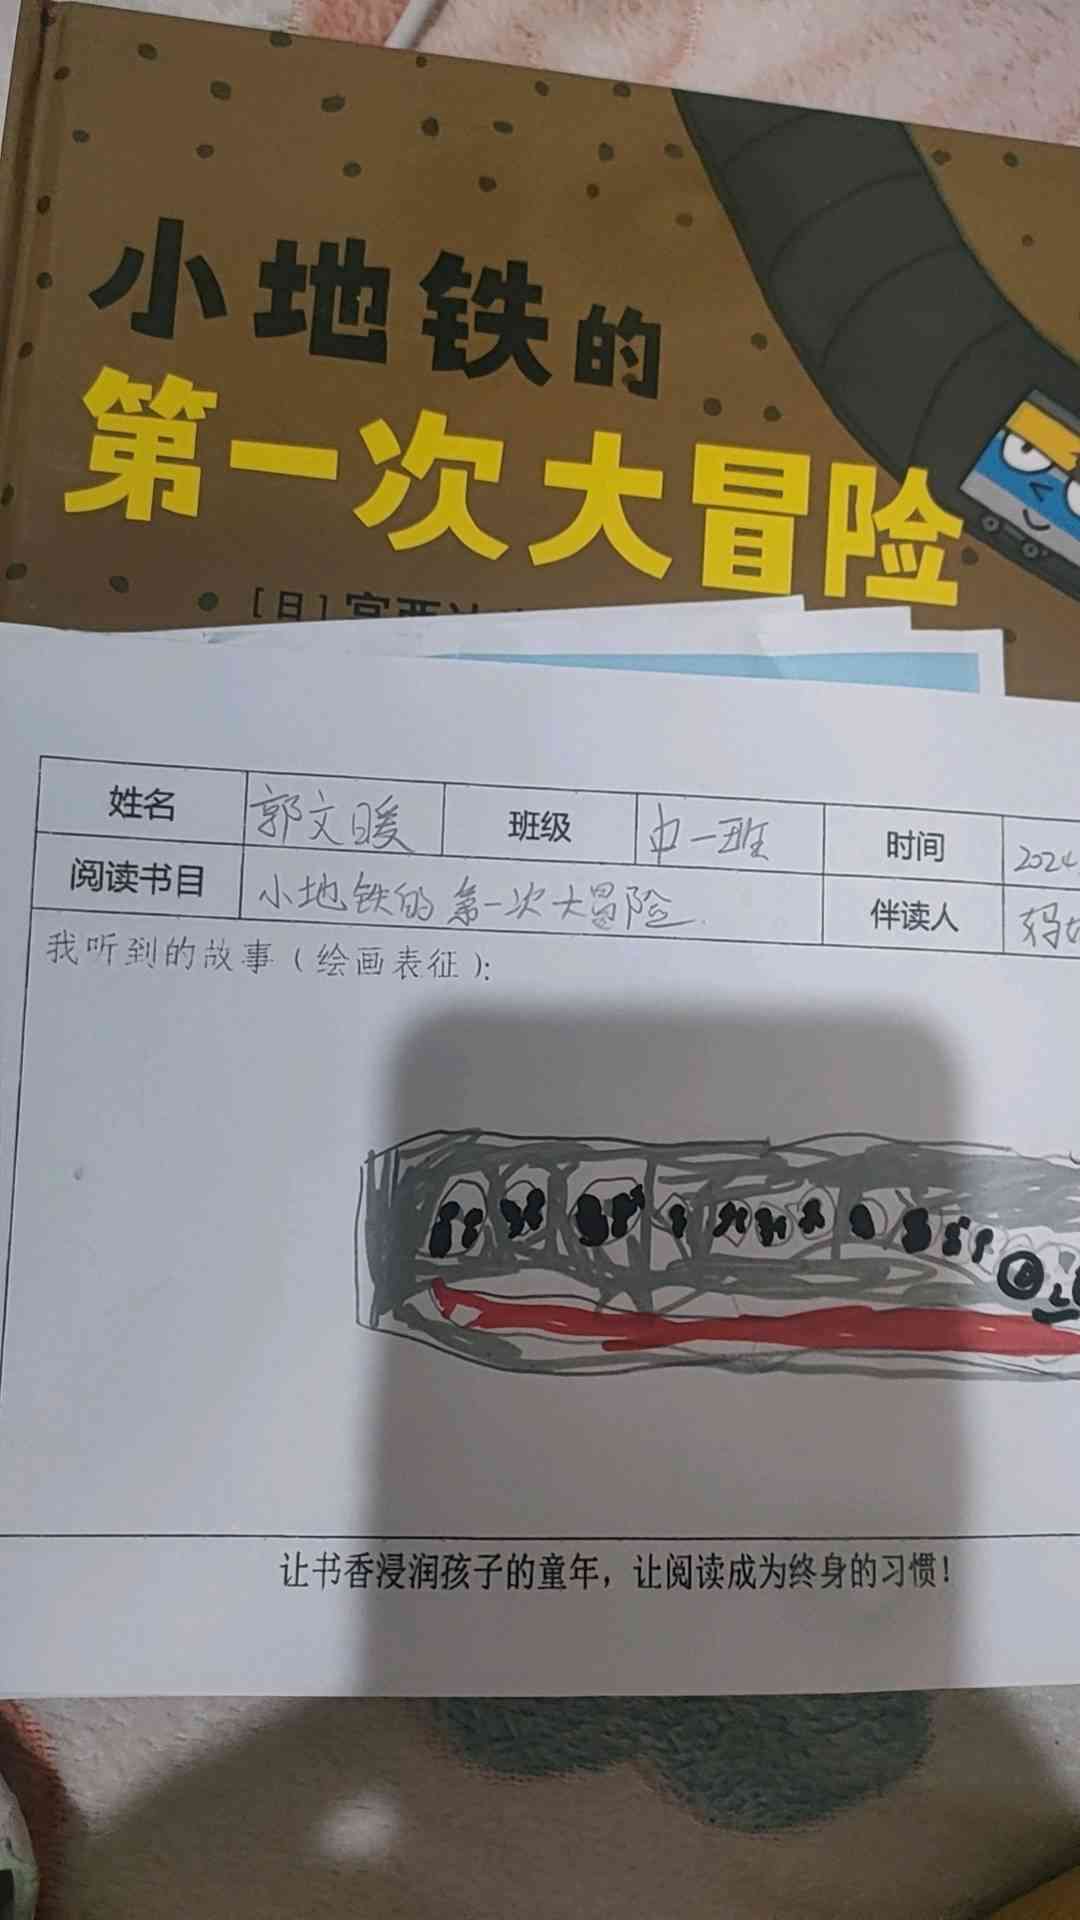 小地铁的
第一次大冒险
[日]宫西
姓名 郭文暖 班级 中一班 时间 2024
阅读书目 小地铁的第一次大冒险 伴读人 妈
我听到的故事(绘画表征):
让书香浸润孩子的童年，让阅读成为终身的习惯！